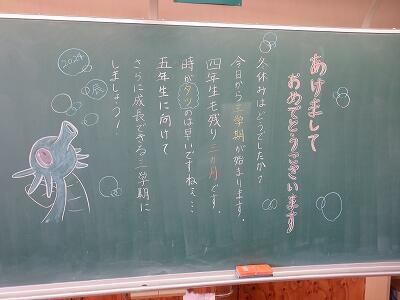 あけまして
おめでとうございます
冬休みはどうでしたか？
今日から三学期が始まります。
四年生も残り三カ月です。
時がタツのは早いですねぇ…
五年生に向けて
さらに成長できる三学期に
しましょう！
2024
辰